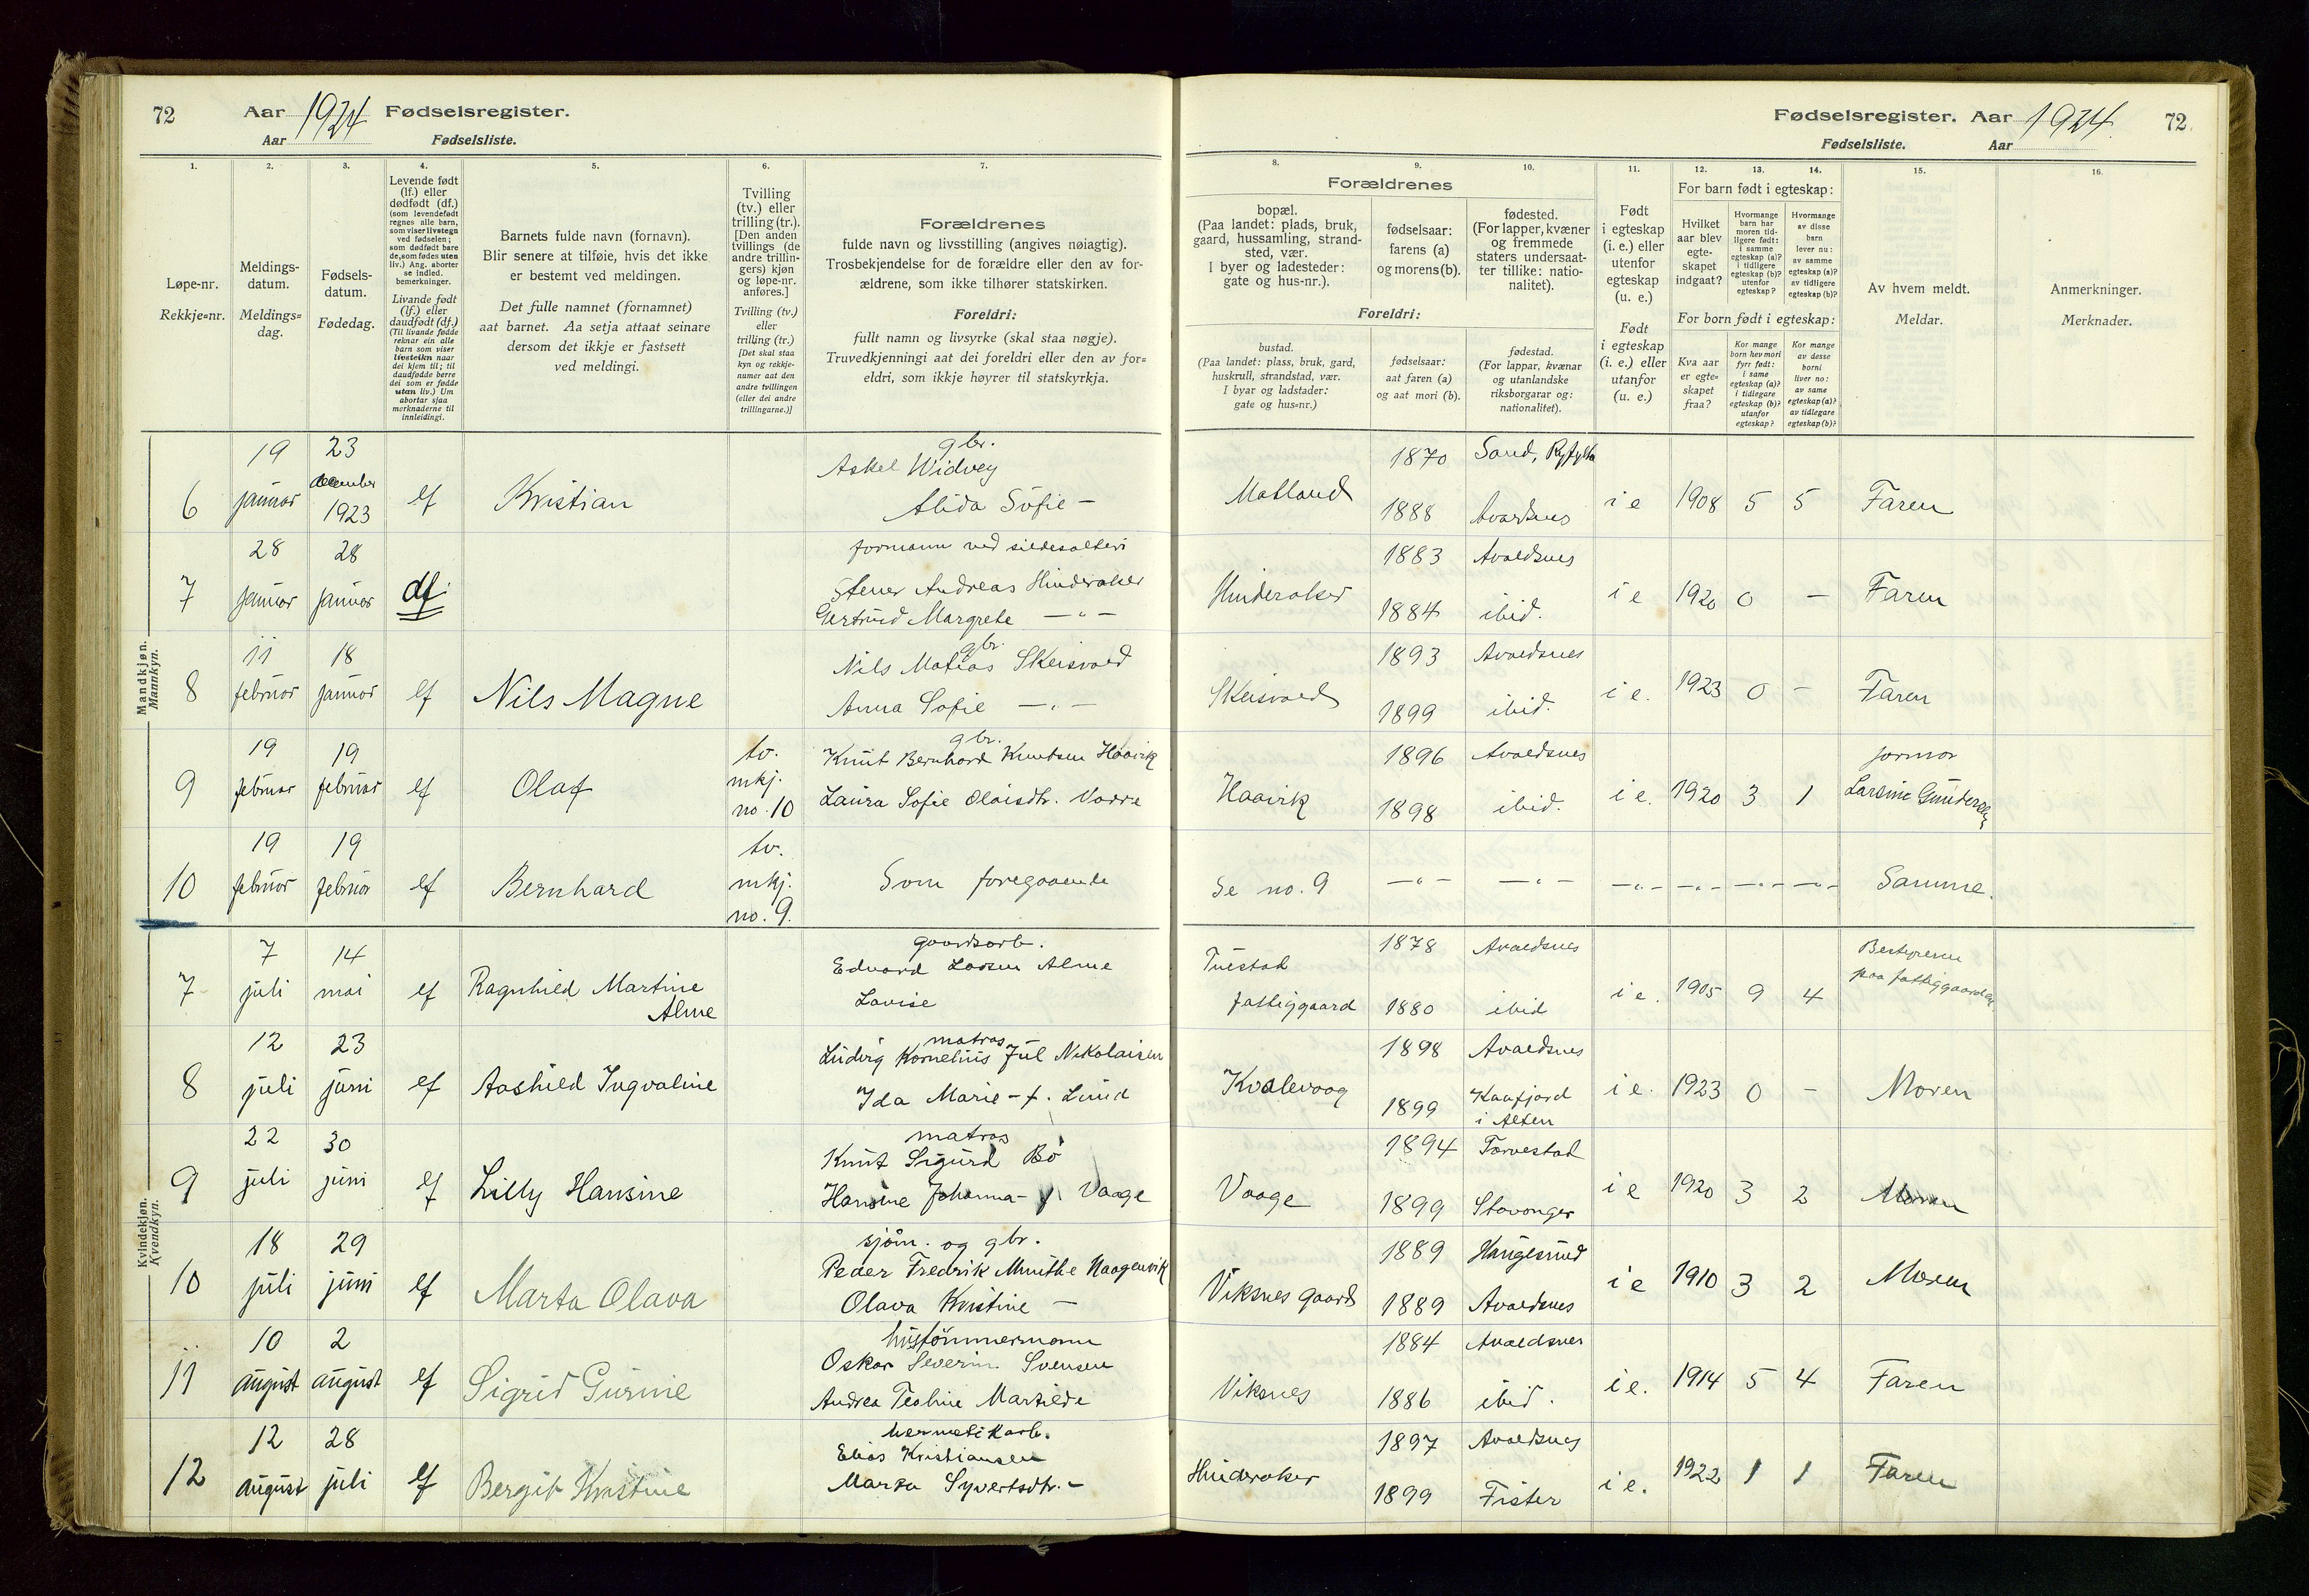 72
Aar 1924 Fødselsregister.
Aar Fødselsliste.
1.
2.
3.
4.
5.
6.
7.
Løpe-nr.
Rekkje-nr.
Meldings-
datum.
Meldings=
dag.
Fødsels-
datum.
Fødedag.
Levende født
(lf.) eller
dødfødt (df.)
(som levendefødt
regnes alle barn,
som viser livstegn
ved fødselen;
som dødfødt bare
de, som fødes uten
liv.) Ang. aborter
se indled.
bemerkninger.
Livande født
(lf.) eller
daudfødt (df.)
(Til livande fødde
reknar ein alle
barn som viser
livsteikn naar
dei kjem til; til
daudfødde berre
dei som er fødde
utan liv.) Um
abortar sjaa
merknaderne til
innleidingi.
Barnets fulde navn (fornavn).
Blir senere at tilføie, hvis det ikke
er bestemt ved meldingen.
Det fulle namnet (fornamnet)
aat barnet. Aa setja attaat seinare
dersom det ikkje er fastsett
ved meldingi.
Tvilling
(tv.) eller
trilling (tr.).
[Den anden
tvillings (de
andre trillin-
gers) kjøn
og løpe-nr.
anføres.]
Tvilling (tv.)
eller
trilling (tr.)
[Det skal staa
kyn og rekkje-
numer aat den
andre tvillingen
(eller dei andre
trillingarne.)]
Forældrenes
fulde navn og livsstilling (angives nøiagtig).
Trosbekjendelse for de forældre eller den av for-
ældrene, som ikke tilhører statskirken.
Foreldri:
fullt namn og livsyrke (skal staa nøgje).
Truvedkjenningi aat dei foreldri eller den av for=
eldri, som ikkje høyrer til statskyrkja.
Fødselsregister. Aar 1924.
72.
Fødselsliste. Aar
8.
9.
10.
11.
12.
13.
14.
15.
16.
Forældrenes
bopæl.
(Paa landet: plads, bruk,
gaard, hussamling, strand-
sted, vær.
I byer og ladesteder:
gate og hus-nr.).
fødselsaar:
farens (a)
og morens (b).
fødested.
(For lapper, kvæner
og fremmede
staters undersaat-
ter tillike: natio-
nalitet).
Foreldri:
bustad.
(Paa landet: plass, bruk, gard,
huskrull, strandstad, vær.
I byar og ladstader:
gate og hus=nr.)
fødselsaar:
aat faren (a)
og aat mori (b).
fødestad.
(For lappar, kvænar
og utanlandske
riksborgarar og:
nationalitet).
Født
i egteskap
(i. e.) eller
utenfor
egteskap
(u. e.)
Født
i egteskap
(i. e.) eller
utanfor
egteskap
(u. e.)
For barn født i egteskap:
Hvilket
aar blev
egte-
skapet
indgaat?
Hvormange
barn har
moren tid-
ligere født:
i samme
egteskap (a)?
i tidligere
egteskap (b)?
utenfor
egteskap?
Hvormange
av disse
barn
lever nu:
av samme
egteskap (a)?
av tidligere
egteskap (b)?
For born født i egteskap:
Kva aar
er egte=
skapet
fraa?
Kor mange
born hev mori
fyrr født:
i same
egteskap (a)?
i tidlegare
egteskap (b)?
utanfor
egteskap?
Kor mange
av desse
borni
liver no:
av same
egteskap (a)?
av tidlegare
egteskap (b)?
Av hvem meldt.
Meldar.
Anmerkninger.
Merknader.
Mandkjøn.
Mannkyn.
6 19 januar 23 december 1923 lf Kristian
gbr.
Askel Widvey
Alida Sofie –
Matland 1870 Sand, Ryfylke
1888 Avaldsnes
i e 1908 5 5 Faren
7 28 januar 28 januar df.
formann ved sildesalteri
Stener Andreas Hinderaker
Gertrud Margrete – " –
Hinderaker 1883 Avaldsnes
1884 ibid.
i e 1920 0 – Faren
8 11 februar 18 januar lf Nils Magne
gbr.
Nils Matias Skeisvold
Anna Sofie – " –
Skeisvold 1893 Avaldsnes
1899 ibid.
i e. 1923 0 – Faren
9 19 februar 19 februar lf Olaf
tv.
mkj.
no. 10
gbr.
Knut Bernhard Knutsen Haavik
Laura Sofie Olaisdtr. Vorre
Haavik 1896 Avaldsnes
1898 ibid.
i e. 1920 3 1
formor
Larsine Gundersen
10 19 februar 19 februar lf Bernhard
tv.
mkj.
no. 9.
Som foregaaende
Se no. 9 – " – – " – – " – – " – – " – – " – Samme.
Kvindekjøn.
Kvendkyn.
7 7 juli 14 mai lf Ragnhild Martine
Alme
gaardsarb.
Edvard Larsen Alme
Lovise
Tuestad
fattiggaard
1878 Avaldsnes
1880 ibid
i e. 1905 9 4
Bestyreren
paa fattiggaarden
8 12 juli 23 juni lf Aashild Ingvaline
matros
Ludvig Kornelius Jul Nikolaisen
Ida Marie – f. Lund
Kvalevaag 1898 Avaldsnes
1899 Kaafjord
i Alten
i e. 1923 0 – Moren
9 22 juli 30 juni lf Lilly Hansine
matros
Knut Sigurd Bö
Hansine Johanna – f. Vaage
Vaage 1894 Torvestad
1899 Stavanger
i e 1920 3 2 Moren
10 18 juli 29 juni lf Marta Olava
sjöm. og gbr.
Peder Fredrik Munthe Haagenvik
Olava Kristine –
Viksnes gaard 1889 Haugesund
1889 Avaldsnes
i e 1910 3 2 Moren
11 10 august 2 august lf Sigrid Gurine
hustömmermann
Oskar Severin Svensen
Andrea Teoline Martilde
Viksnes 1884 Avaldsnes
1886 ibid.
i e. 1914 5 4 Faren
12 12 august 28 juli lf Bergit Kristine
hermetikarb.
Elias Kristiansen
Marta Syvertsdtr. –
Hinderaker 1897 Avaldsnes
1899 Fister
i e. 1922 1 1 Faren